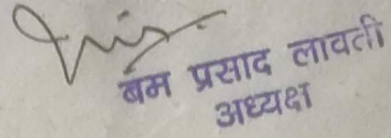 बम प्रसाद लावती
अध्यक्ष